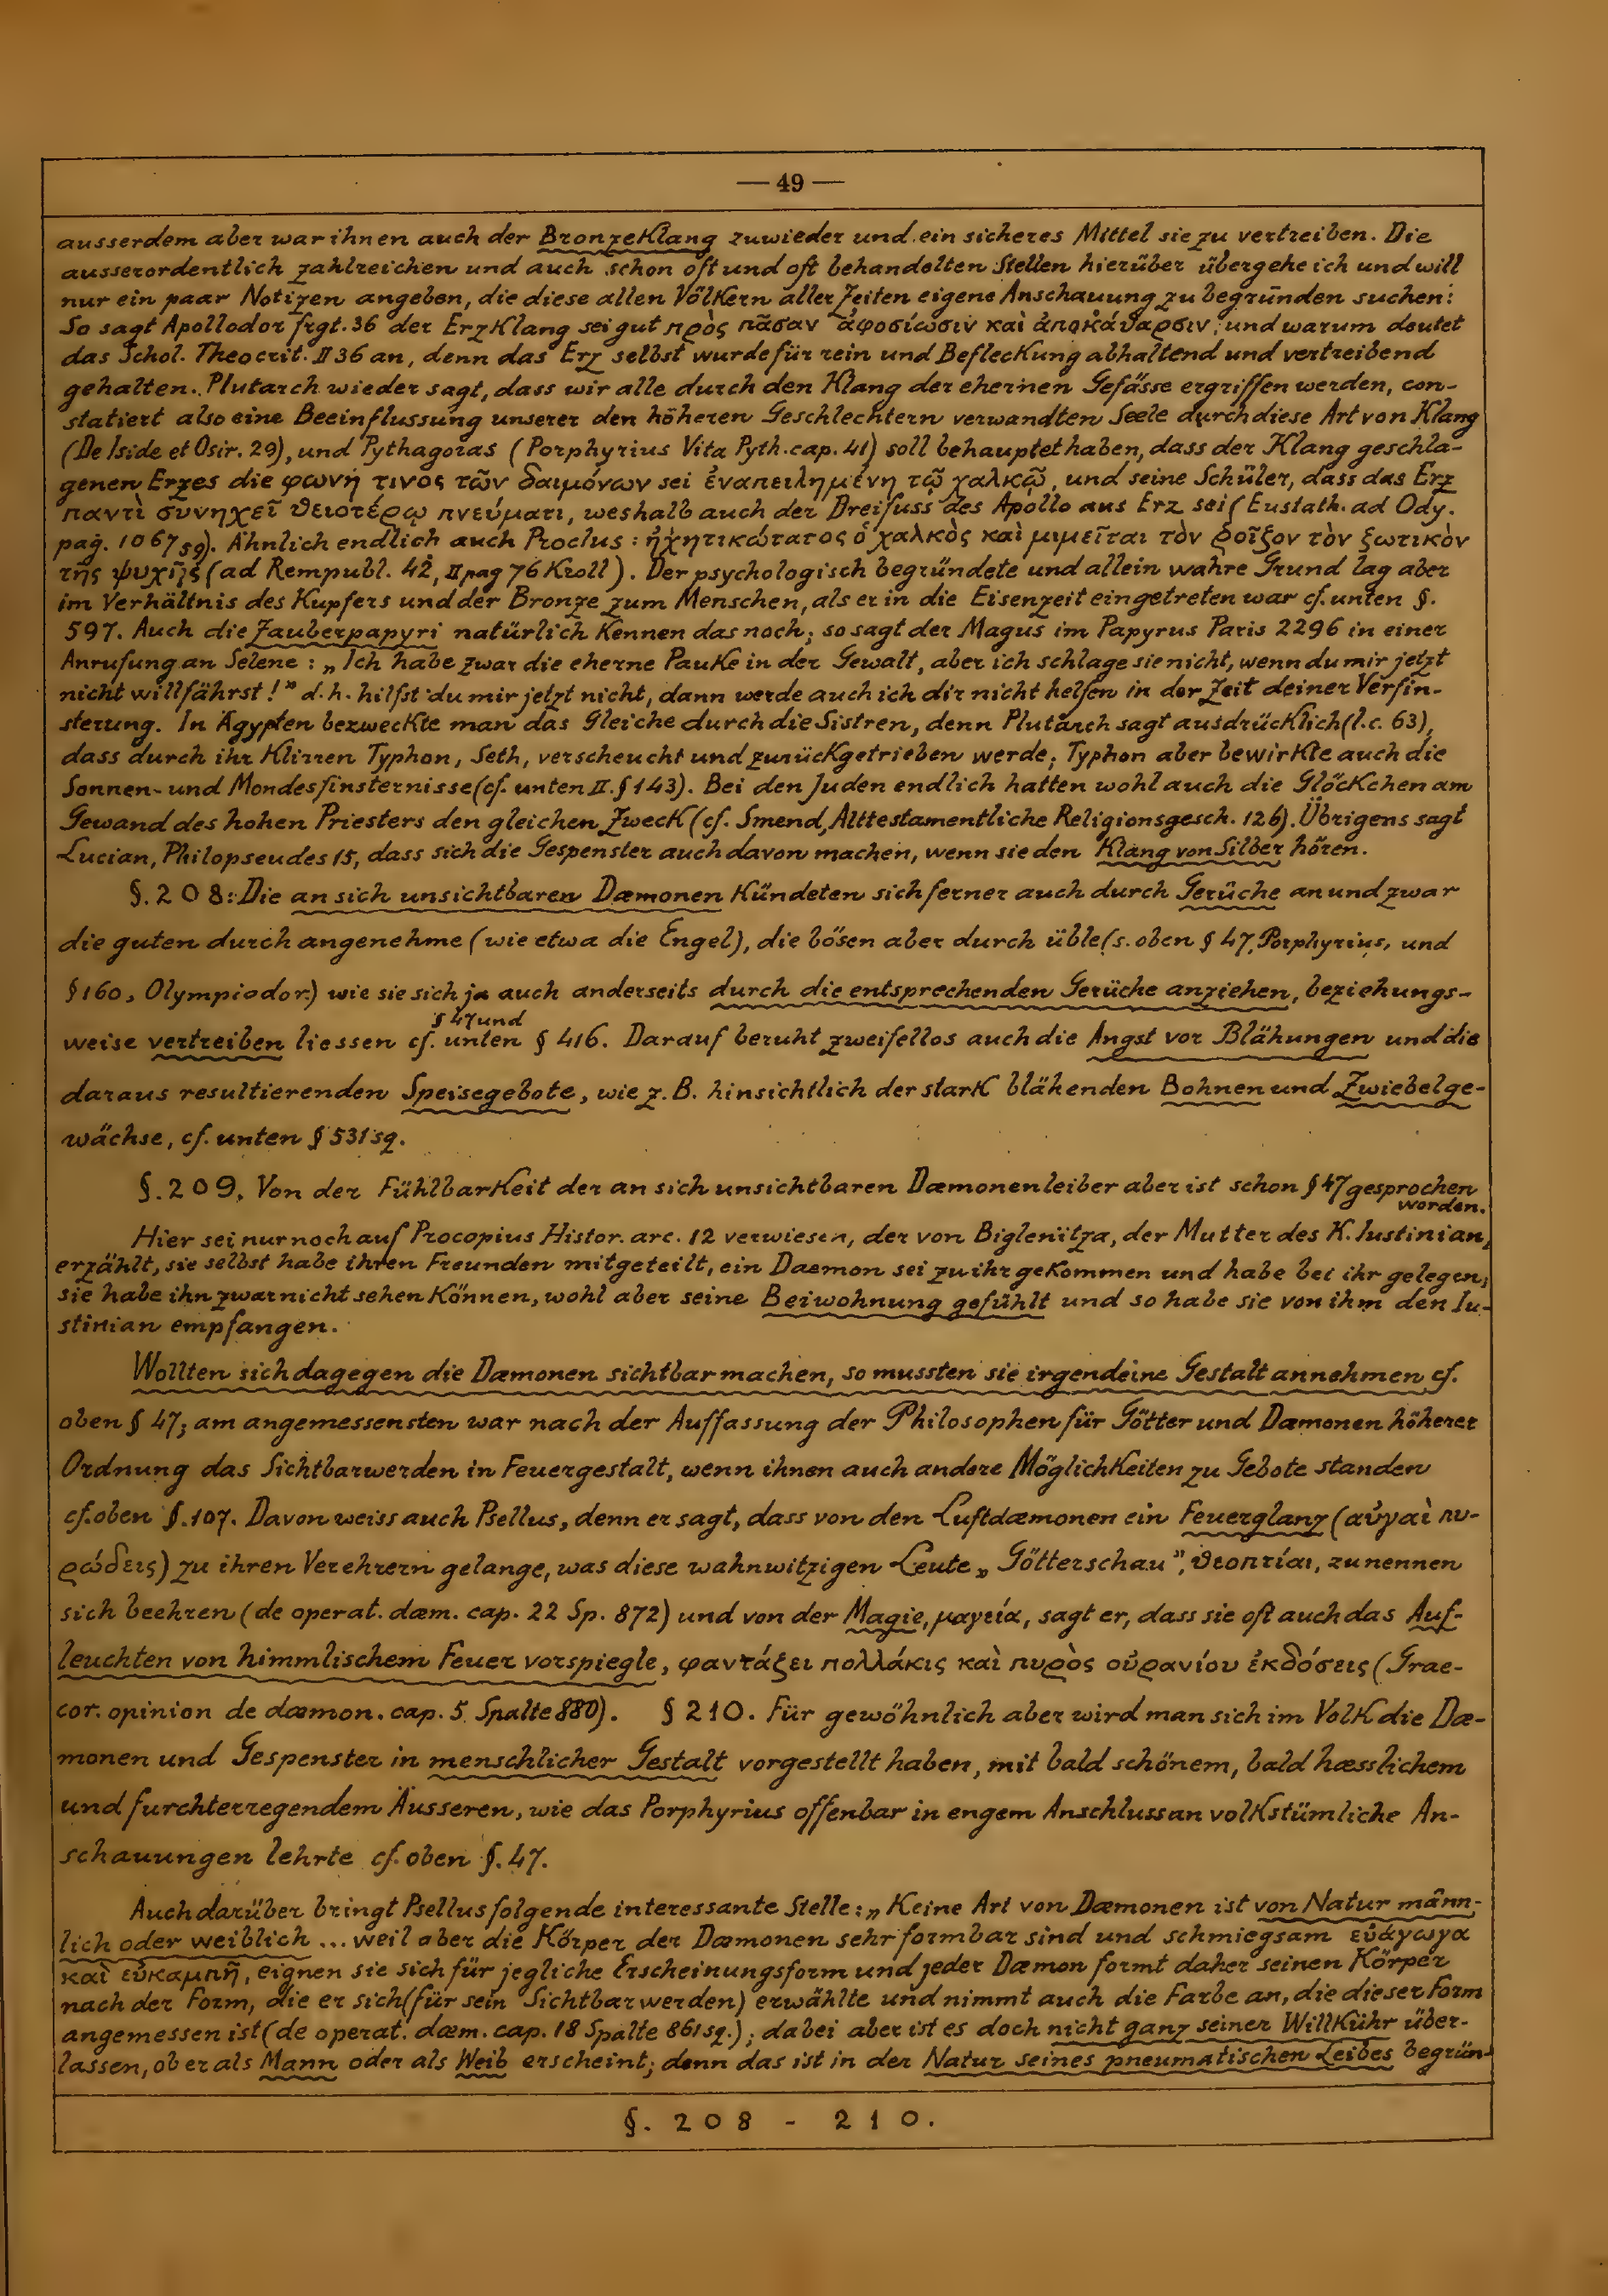 — 49 —
ausserdem aber war ihnen auch der BronzeKlang zuwieder und ein sicheres Mittel sie zu vertreiben. Die
ausserordentlich zahlreichen und auch schon oft und oft behandelten Stellen hierüber übergehe ich und will
nur ein paar Notizen angeben, die diese allen Völkern aller Zeiten eigene Anschauung zu begründen suchen:
So sagt Apollodor frgt. 36 der ErzKlang sei gut πρὸς πᾶσαν ἀφοσίωσιν καὶ ἀποκάθαρσιν, und warum deutet
das Schol. Theocrit. II 36 an, denn das Erz selbst wurde für rein und Befleckung abhaltend und vertreibend
gehalten. Plutarch wieder sagt, dass wir alle durch den Klang der ehernen Gefässe ergriffen werden, con-
statiert also eine Beeinflussung unserer den höheren Geschlechtern verwandten Seele durch diese Art von Klang
(De Iside et Osir. 29), und Pythagoras (Porphyrius Vita Pyth. cap. 41) soll behauptet haben, dass der Klang geschla-
genen Erzes die φωνή τινος τῶν δαιμόνων sei ἐναπειλημένη τῷ χαλκῷ, und seine Schüler, dass das Erz
παντὶ συνηχεῖ θειοτέρῳ πνεύματι, weshalb auch der Dreifuss des Apollo aus Erz sei (Eustath. ad Ody.
pag. 1067 59). Ähnlich endlich auch Proclus: ἠχητικώτατος ὁ χαλκὸς καὶ μιμεῖται τὸν ῥοῖζον τὸν ζωτικὸν
τῆς ψυχῆς (ad Rempubl. 42, II pag 76 Kroll). Der psychologisch begründete und allein wahre Grund lag aber
im Verhältnis des Kupfers und der Bronze zum Menschen, als er in die Eisenzeit eingetreten war cf. unten §.
597. Auch die Zauberpapyri natürlich Kennen das noch; so sagt der Magus im Papyrus Paris 2296 in einer
Anrufung an Selene: „Ich habe zwar die eherne Pauke in der Gewalt, aber ich schlage sie nicht, wenn du mir jetzt
nicht willfährst!" d.h. hilfst du mir jetzt nicht, dann werde auch ich dir nicht helfen in der Zeit deiner Verfin-
sterung. In Ägypten bezweckte man das Gleiche durch die Sistren, denn Plutarch sagt ausdrücklich (l.c. 63),
dass durch ihr Klirren Typhon, Seth, verscheucht und zurückgetrieben werde; Typhon aber bewirkte auch die
Sonnen- und Mondesfinsternisse (cf. unten II. § 143). Bei den Juden endlich hatten wohl auch die Glöckchen am
Gewand des hohen Priesters den gleichen Zweck (cf. Smend, Alttestamentliche Religionsgesch. 126). Übrigens sagt
Lucian, Philopseudes 15, dass sich die Gespenster auch davon machen, wenn sie den Klang von Silber hören.
§. 208: Die an sich unsichtbaren Dæmonen Kündeten sich ferner auch durch Gerüche an und zwar
die guten durch angenehme (wie etwa die Engel), die bösen aber durch üble (s. oben § 47, Porphyrius, und
§ 160, Olympiodor.) wie sie sich ja auch anderseits durch die entsprechenden Gerüche anziehen, beziehungs-
§ 47 und
weise vertreiben liessen cf. unten § 416. Darauf beruht zweifellos auch die Angst vor Blähungen und die
daraus resultierenden Speisegebote, wie z.B. hinsichtlich der stark blähenden Bohnen und Zwiebelge-
wächse, cf. unten § 531 sq.
§. 209. Von der Fühlbarkeit der an sich unsichtbaren Dæmonenleiber aber ist schon § 47 gesprochen
worden.
Hier sei nur noch auf Procopius Histor. arc. 12 verwiesen, der von Biglenitza, der Mutter des K. Iustinian,
erzählt, sie selbst habe ihren Freunden mitgeteilt, ein Daemon sei zu ihr gekommen und habe bei ihr gelegen;
sie habe ihn zwar nicht sehen Können, wohl aber seine Beiwohnung gefühlt und so habe sie von ihm den Iu-
stinian empfangen.
Wollten sich dagegen die Dæmonen sichtbar machen, so mussten sie irgendeine Gestalt annehmen cf.
oben § 47; am angemessensten war nach der Auffassung der Philosophen für Götter und Dæmonen höherer
Ordnung das Sichtbarwerden in Feuergestalt, wenn ihnen auch andere Möglichkeiten zu Gebote standen
cf. oben §. 107. Davon weiss auch Psellus, denn er sagt, dass von den Luftdæmonen ein Feuerglanz (αὐγαὶ πυ-
ρώδεις) zu ihren Verehrern gelange, was diese wahnwitzigen Leute „Götterschau", θεοπτίαι, zu nennen
sich beehren (de operat. dæm. cap. 22 Sp. 872) und von der Magie, μαγεία, sagt er, dass sie oft auch das Auf-
leuchten von himmlischem Feuer vorspiegle, φαντάζει πολλάκις καὶ πυρὸς οὐρανίου ἐκδόσεις (Grae-
cor. opinion de dæmon. cap. 5 Spalte 880). § 210. Für gewöhnlich aber wird man sich im Volk die Dæ-
monen und Gespenster in menschlicher Gestalt vorgestellt haben, mit bald schönem, bald hæsslichem
und furchterregendem Äusseren, wie das Porphyrius offenbar in engem Anschluss an volkstümliche An-
schauungen lehrte cf. oben §. 47.
Auch darüber bringt Psellus folgende interessante Stelle: „Keine Art von Dæmonen ist von Natur männ-
lich oder weiblich ... weil aber die Körper der Dæmonen sehr formbar sind und schmiegsam εὐάγωγα
καὶ εὐκαμπῆ, eignen sie sich für jegliche Erscheinungsform und jeder Dæmon formt daher seinen Körper
nach der Form, die er sich (für sein Sichtbarwerden) erwählte und nimmt auch die Farbe an, die dieser Form
angemessen ist (de operat. dæm. cap. 18 Spalte 861 sq.); dabei aber ist es doch nicht ganz seiner Willkühr über-
lassen, ob er als Mann oder als Weib erscheint; denn das ist in der Natur seines pneumatischen Leibes begrün-
§. 208 - 210.